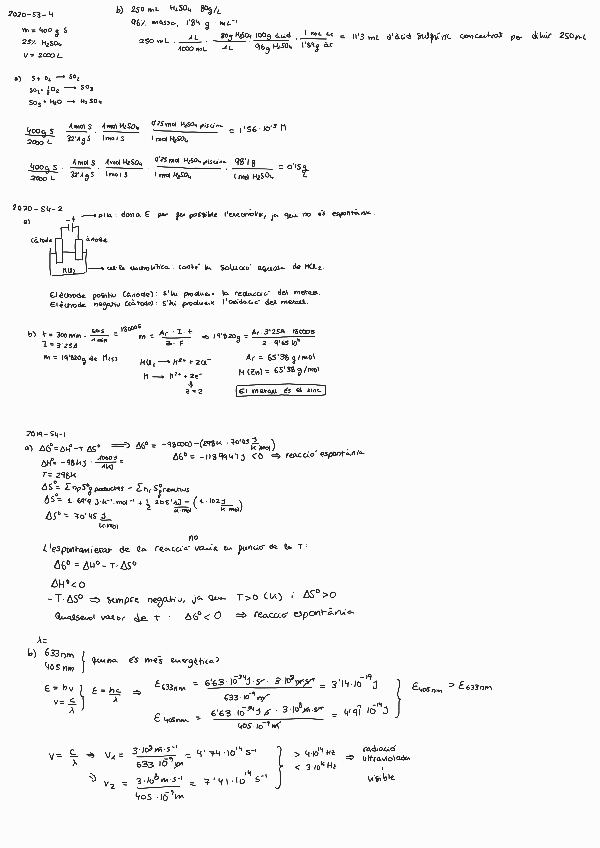 2020-S3-4
m = 400 g S
25% H₂SO₄
V = 2000 L
b) 250 mL H₂SO₄ 80g/L
96% massa, 1'84 g mL⁻¹
250 mL · 1L/1000 mL · 80g H₂SO₄/1L · 100g àcid/96g H₂SO₄ · 1 mL àc/1'84g àc = 11'3 mL d'àcid sulfúric concentrat per diluir 250mL
a) S + O₂ → SO₂
SO₂ + ½O₂ → SO₃
SO₃ + H₂O → H₂SO₄
400g S/2000 L · 1mol S/32'1g S · 1mol H₂SO₄/1mol S · 0'25 mol H₂SO₄ piscina/1 mol H₂SO₄ = 1'56·10⁻³ M
400g S/2000 L · 1mol S/32'1g S · 1mol H₂SO₄/1mol S · 0'25 mol H₂SO₄ piscina/1 mol H₂SO₄ · 98'1g/1mol H₂SO₄ = 0'15 g/L
2020-S4-2
a)
- +
→ pila: dona E per fer possible l'electròlisi, ja que no és espontània.
càtode
ànode
MCl₂
→ cel·la electrolítica: conté la solució aquosa de MCl₂.
Elèctrode positiu (ànode): s'hi produeix la reducció del metall.
Elèctrode negatiu (càtode): s'hi produeix l'oxidació del metall.
b) t = 300min · 60s/1min = 18000s
I = 3'25A
m = 19'820g de M(s)
m = Ar · I · t/z · F ⇒ 19'820g = Ar · 3'25A · 18000s/2 · 9'65·10⁴
MCl₂ → M²⁺ + 2Cl⁻
M → M²⁺ + 2e⁻
z = 2
Ar = 65'38 g/mol
M (Zn) = 65'38 g/mol
El metall és el zinc
2019-S4-1
a) ΔG° = ΔH° - T ΔS° ⇒ ΔG° = -98000J - (298K · 70'45 J/K·mol)
ΔH° = -98KJ · 1000J/1KJ =
ΔG° = -118994'1 J < 0 ⇒ reacció espontània
T = 298K
ΔS° = Σnp S° productes - Σnr S° reactius
ΔS° = 1·69'9 J·K⁻¹·mol⁻¹ + ½ 205'1 J/K·mol - (1·102 J/K·mol)
ΔS° = 70'45 J/K·mol
no
L'espontaneïtat de la reacció varia en funció de la T:
ΔG° = ΔH° - T·ΔS°
ΔH° < 0
- T·ΔS° ⇒ sempre negatiu, ja que T>0 (K) i ΔS°>0
Qualsevol valor de T: ΔG° < 0 ⇒ reacció espontània
λ=
b) 633nm
405nm
quina és més energètica?
E = hν
ν = c/λ
E = hc/λ ⇒ E633nm = 6'63·10⁻³⁴J·s · 3·10⁸m·s⁻¹/633·10⁻⁹m = 3'14·10⁻¹⁹J
E405nm = 6'63·10⁻³⁴J·s · 3·10⁸m·s⁻¹/405·10⁻⁹m = 4'91·10⁻¹⁹J
E405nm > E633nm
ν = c/λ ⇒ ν₁ = 3·10⁸m·s⁻¹/633·10⁻⁹m = 4'74·10¹⁴ s⁻¹
ν₂ = 3·10⁸m·s⁻¹/405·10⁻⁹m = 7'41·10¹⁴ s⁻¹
> 4·10¹⁴ Hz
< 3·10¹⁶ Hz
⇒ radiació
ultraviolada
i
visible